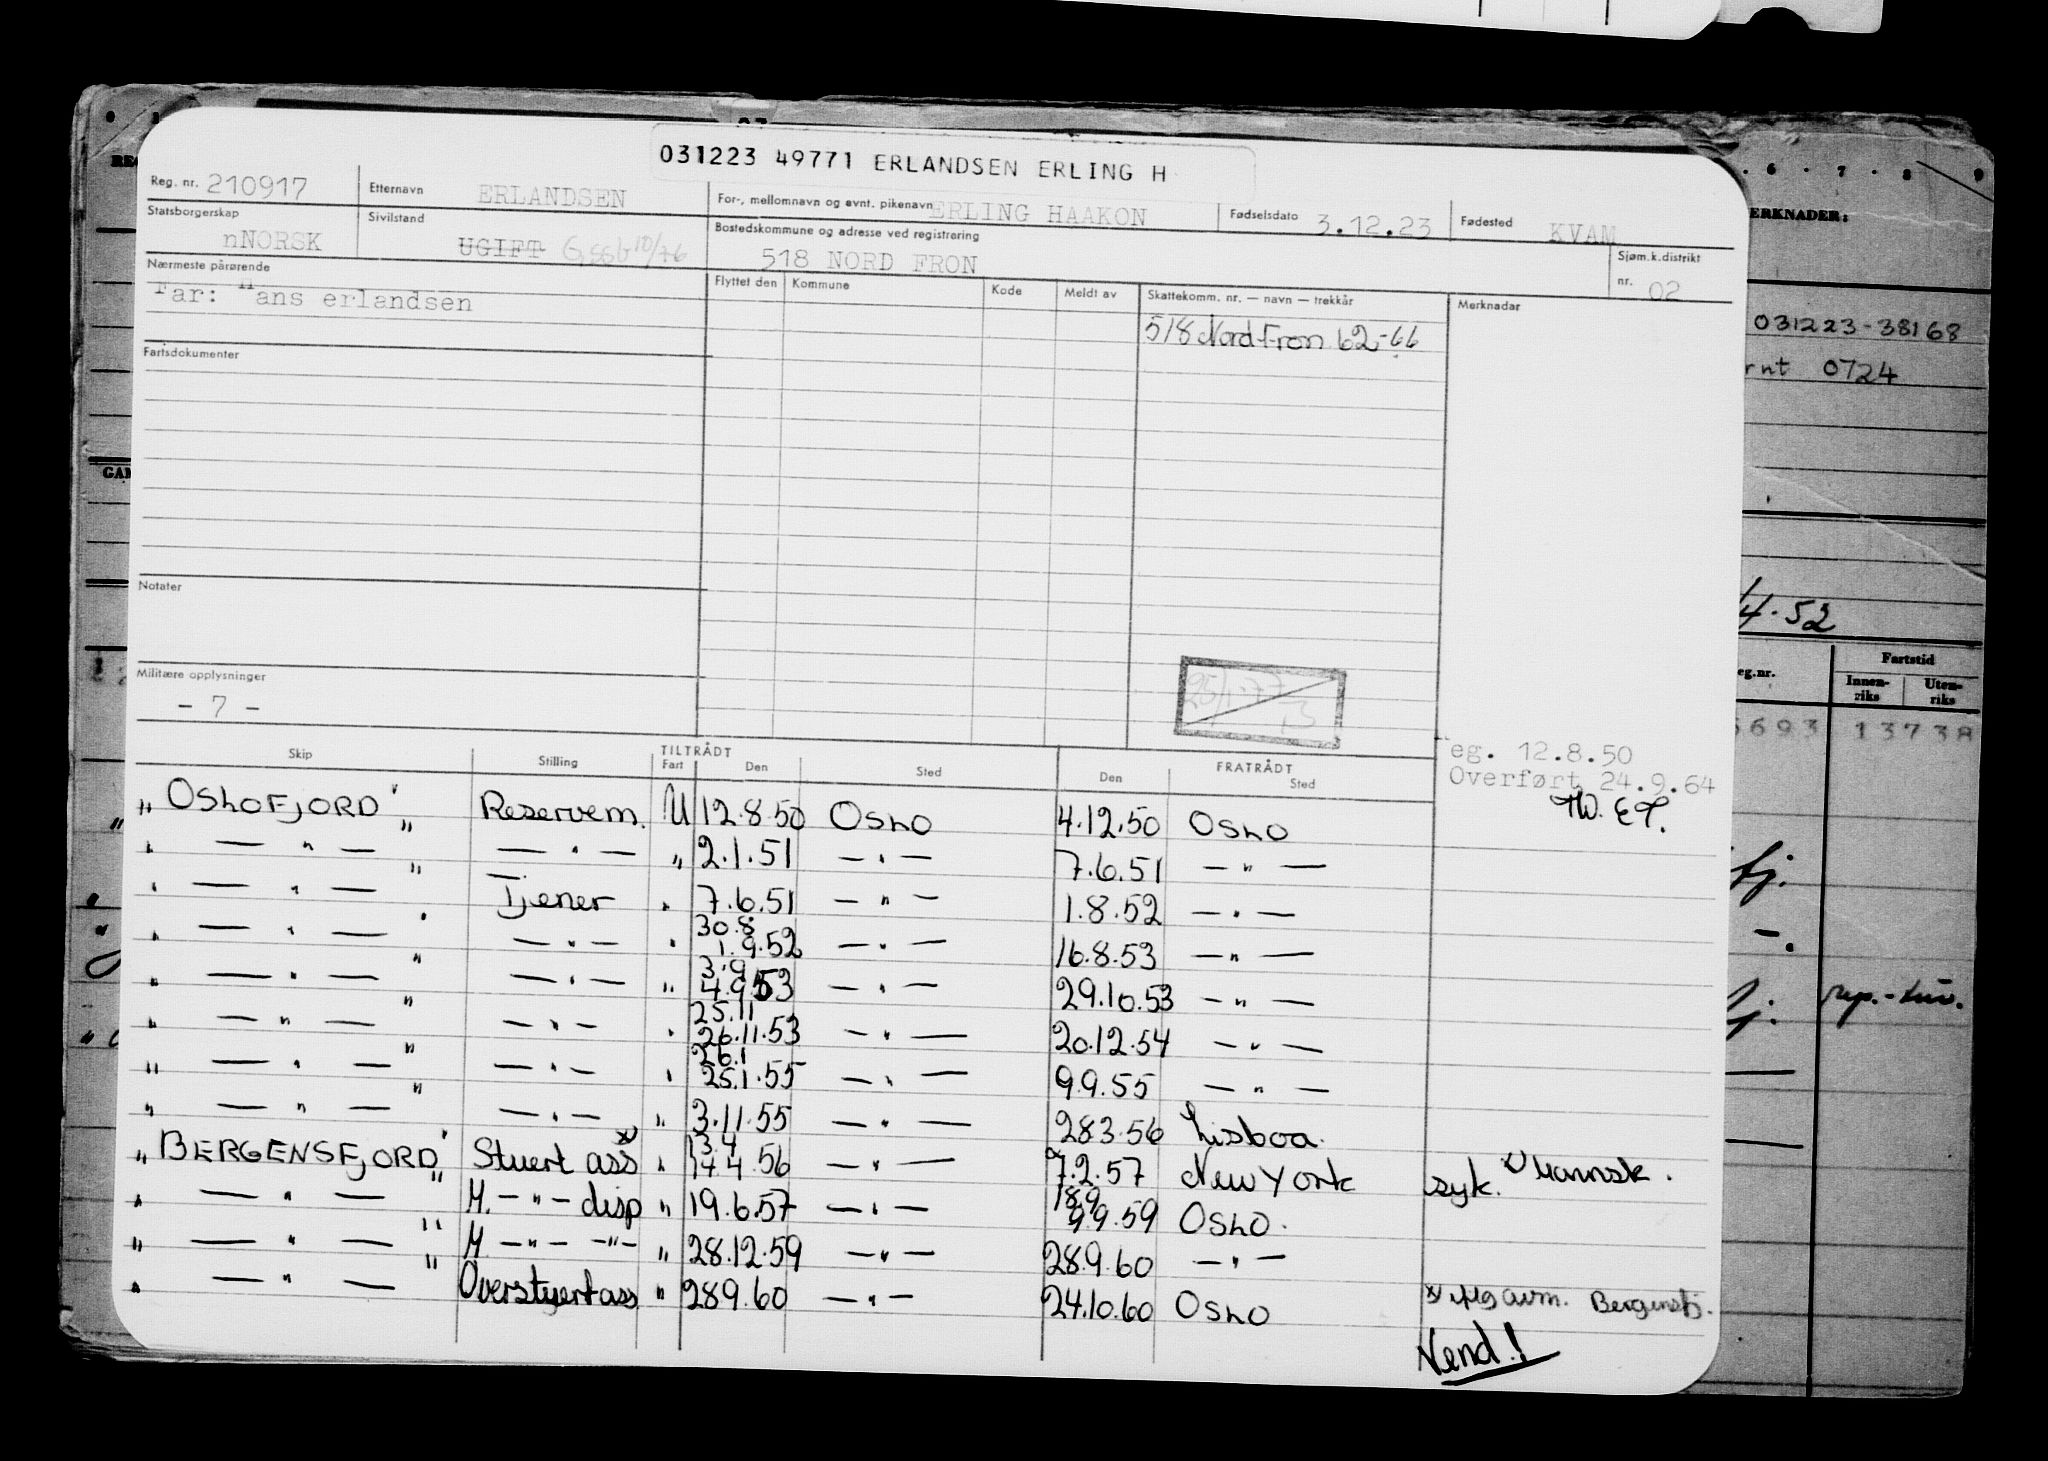 031223 49771 ERLANDSEN ERLING H
Reg. nr. 210917 Etternavn ERLANDSEN For-, mellomnavn og evnt. pikenavn ERLING HAAKON Fødselsdato 3.12.23 Fødested KVAM
Statsborgerskap nNORSK Sivilstand UGIFT 10/76 Bostedskommune og adresse ved registrering 518 NORD FRON Sjøm.k.distrikt nr. 02
Nærmeste pårørende Far: Hans erlandsen
Flyttet den Kommune Kode Meldt av Skattekomm. nr. — navn — trekkår Merknadar
518 Nord-Fron 62-66
Fartsdokumenter
Notater
Militære opplysninger
- 7 -
eg. 12.8.50
Overført 24.9.64
TILTRÅDT FRATRÅDT
Skip Stilling Fart Den Sted Den Sted
„ OSLOFJORD " Reservem. U 12.8.50 OSLO 4.12.50 OSLO
„ — " — „ — " — „ 2.1.51 — " — 7.6.51 — " —
" — " — " Tjener " 7.6.51 — " — 1.8.52 — " —
30.8
" — " — " — " — " 1.9.52 — " — 16.8.53 — " —
3.9
" — " — " — " — " 4.9.53 — " — 29.10.53 — " —
25.11
" — " — " — " — " 26.11.53 — " — 20.12.54 — " —
26.1
" — " — " — " — " 25.1.55 — " — 9.9.55 — " —
" — " — " — " — " 3.11.55 — " — 28.3.56 Lisboa.
13.4
„ BERGENSFJORD " Stuert ass " 17.4.56 — " — 7.2.57 New York syk.
18.9
" — " — " M. — " — disp " 19.6.57 — " — 9.9.59 OSLO.
" — " — " M — " — — " — " 28.12.59 — " — 28.9.60 — " —
" — " — " Overstuert ass " 28.9.60 — " — 24.10.60 OSLO Bergensfj.
Vend!
6 . 7 . 8 9
ERKNADER:
031223-38168
rnt 0724
4.52
eg.nr. Fartstid
Innen-riks Uten-riks
6693 13738
fj.